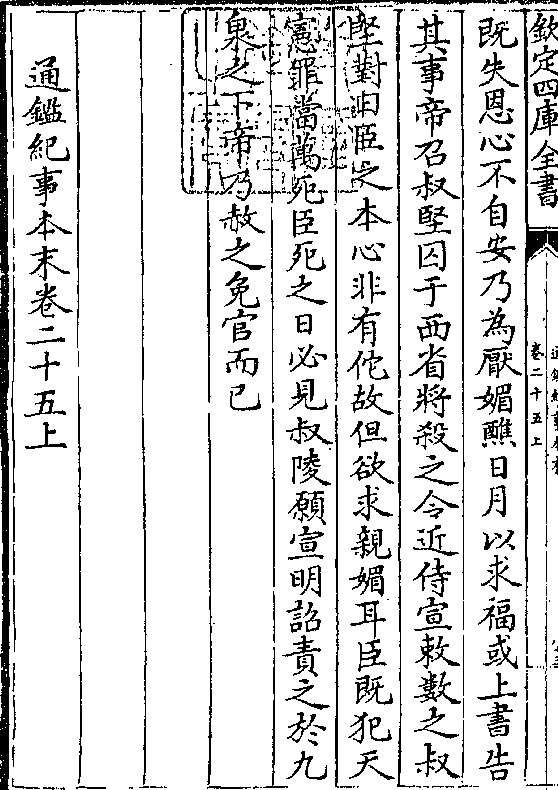 欽定四庫全書
卷二十五上
既失恩心不自安乃為厭媚醮日月以求福或上書告
其事帝召叔堅囚于西省將殺之令近侍宣敕數之叔
堅對曰臣之本心非有佗故但欲求親媚耳臣既犯天
憲罪當萬死臣死之日必見叔陵願宣明詔責之於九
泉之下帝乃赦之免官而已
通鑑紀事本末卷二十五上